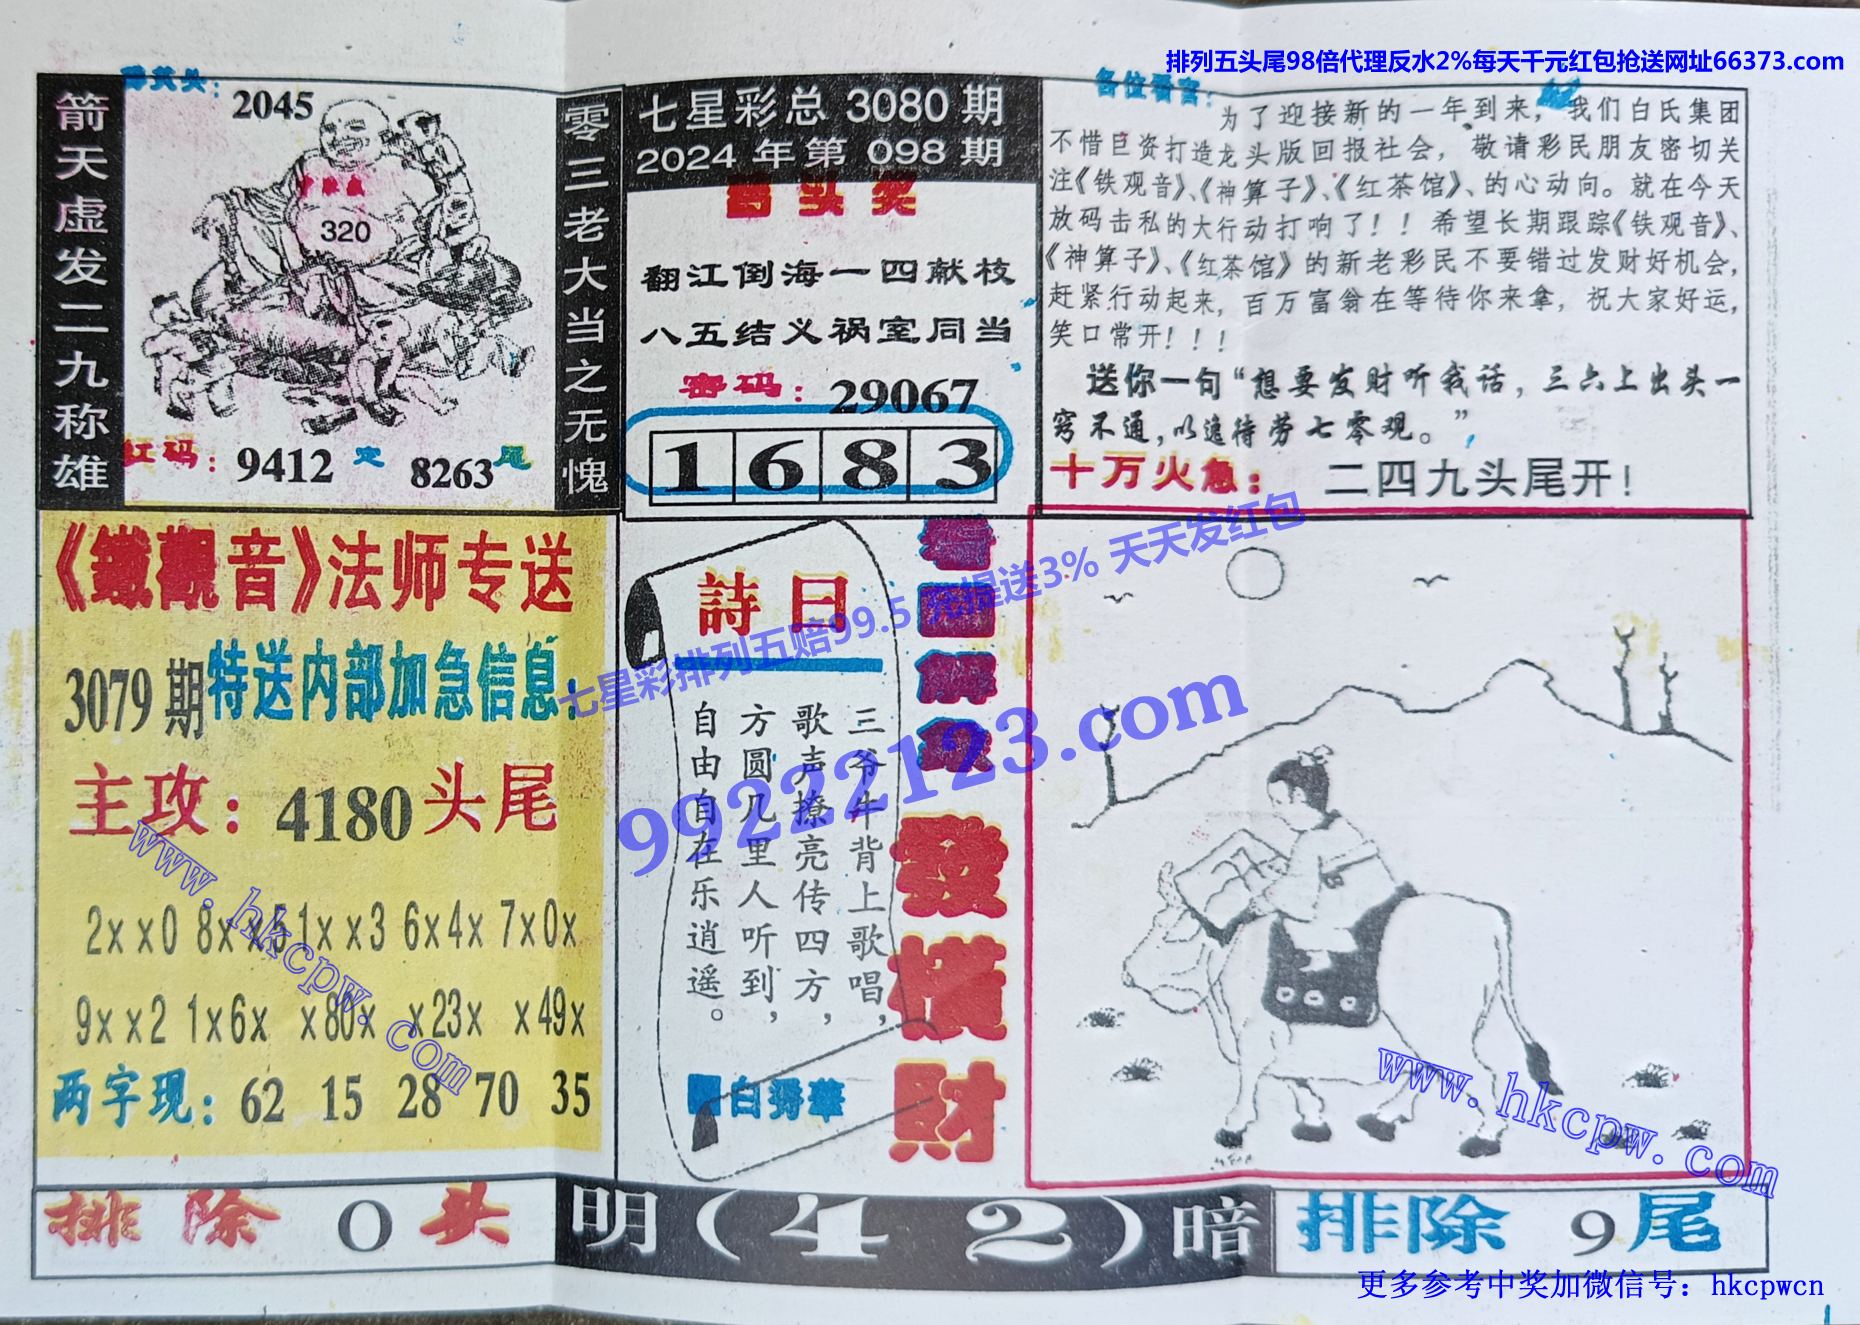 排列五头尾98倍代理反水2%每天千元红包抢送网址66373.com
箭天虚发二九称雄
2045
320
红码：9412 定 8263尾
零三老大当之无愧
七星彩总 3080 期
2024 年第 098 期
翻江倒海一四献枝
八五结义祸室同当
密码：29067
1 6 8 3
各位看官：
为了迎接新的一年到来，我们白氏集团
不惜巨资打造龙头版回报社会，敬请彩民朋友密切关
注《铁观音》、《神算子》、《红茶馆》、的心动向。就在今天
放码击私的大行动打响了！！希望长期跟踪《铁观音》、
《神算子》、《红茶馆》的新老彩民不要错过发财好机会，
赶紧行动起来，百万富翁在等待你来拿，祝大家好运，
笑口常开！！！
送你一句“想要发财听我话，三六上出头一
窍不通，以逸待劳七零观。”
十万火急：二四九头尾开！
《鐵觀音》法师专送
3079期特送内部加急信息：
主攻：4180头尾
2xx0 8xx5 1xx3 6x4x 7x0x
9xx2 1x6x x80x x23x x49x
两字现：62 15 28 70 35
詩曰
三爷牛背上歌唱，
歌声撩亮传四方，
方圆几里人听到，
自由自在乐逍遥。
發橫財
七星彩排列五赔99.5 充提送3% 天天发红包
99222123.com
www.hkcpw.com
www.hkcpw.com
排除 0 头
明(4 2)暗
排除 9尾
更多参考中奖加微信号：hkcpwcn